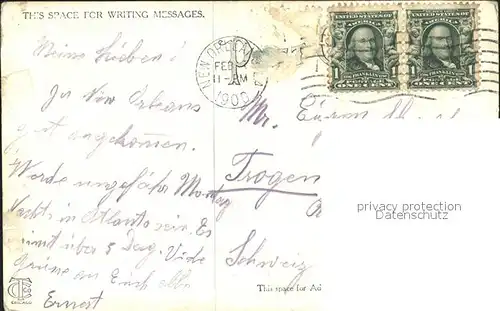 THIS SPACE FOR WRITING MESSAGES.
Meine Lieben!
In New Orleans
gut angekommen.
Werde ungefähr Montag
Nachts in Atlanta sein. Es
nimt über 5 Tag. Viele
Grüsse an Euch alle
Ernest
NEW ORLEANS
FEB
11-AM
1909
UNITED STATES OF AMERICA
FRANKLIN
ONE CENT
1
UNITED STATES OF AMERICA
FRANKLIN
ONE CENT
1
Mr.
Trogen
Schweiz
This space for Ad
privacy protection
Datenschutz
CHICAGO